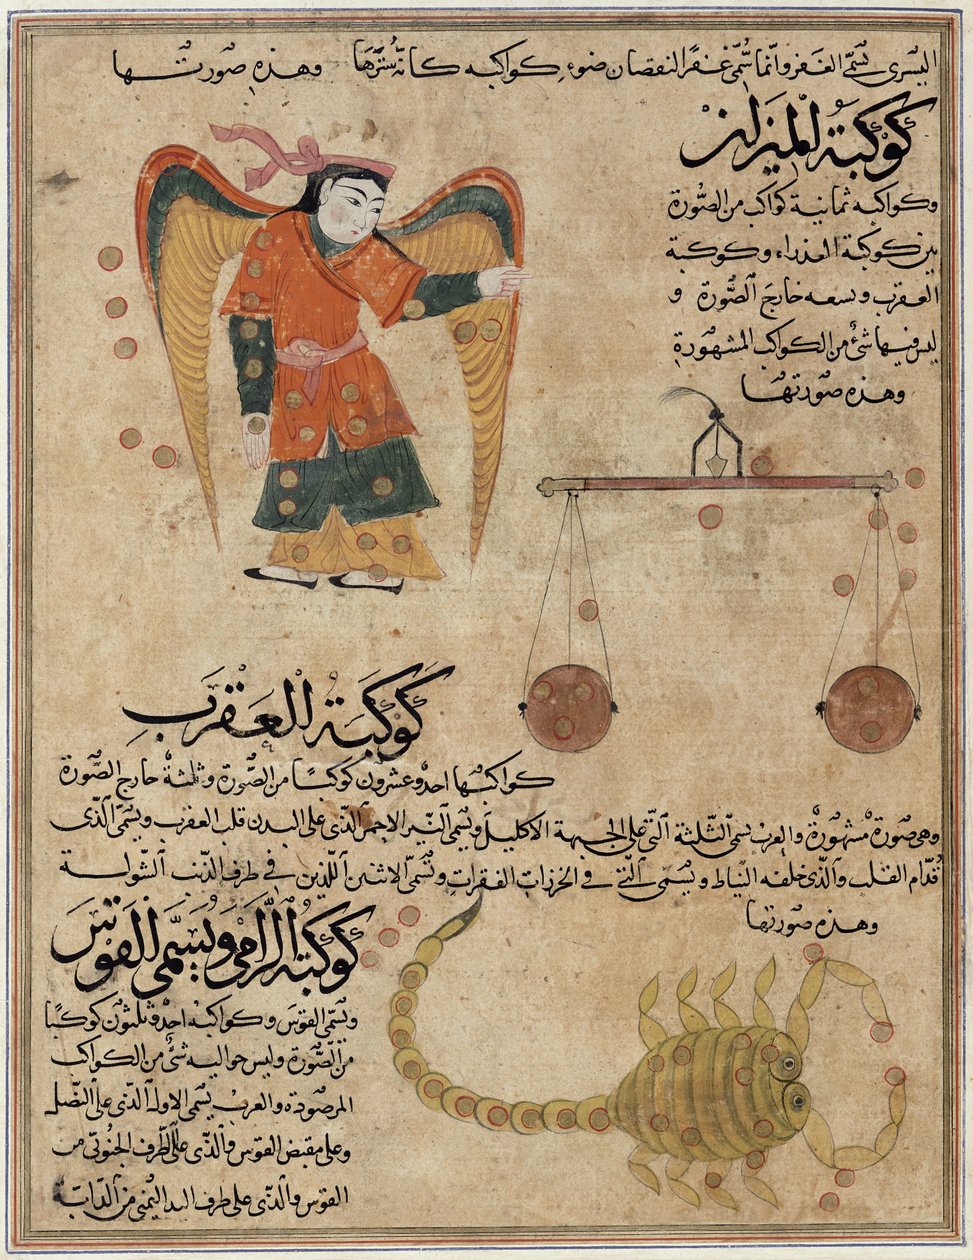 اليسرى يسمّى الغفر وانّما سمّى غفرا لنقصان ضوء كواكبه كانّه سترها وهذه صورتها
كوكبة الميزان
وكواكبه ثمانية كواكب من الصّورة
بين كوكبة العذراء وكوكبة
العقرب وتسعه خارج الصّورة و
ليس فيها شئ من الكواكب المشهورة
وهذه صورتها
كوكبة العقرب
كواكبها احد وعشرون كوكبًا من الصّورة وثلثة خارج الصّورة
وهى صورة مشهورة والعرب يسمى الثلثة التى على الجبهة الاكليل ويسمى النير الاحمر الذى على البدن قلب العقرب ويسمى الذى
قدّام القلب والذى خلفه النياط ويسمى التى فى الخرزات الفقرات وتسمى الاثنين اللذين فى طرف الذنب الشولة
وهذه صورتها
كوكبة الرامى ويسمى القوس
ويسمى القوس وكواكبه احد وثلثون كوكبًا
من الصّورة وليس حواليه شئ من الكواكب
المرصودة والعرب يسمى الاول الذى على النصل
وعلى مقبض القوس والذى على الطرف الجنوبى من
القوس والذى على طرف اليد اليمنى من الدابة